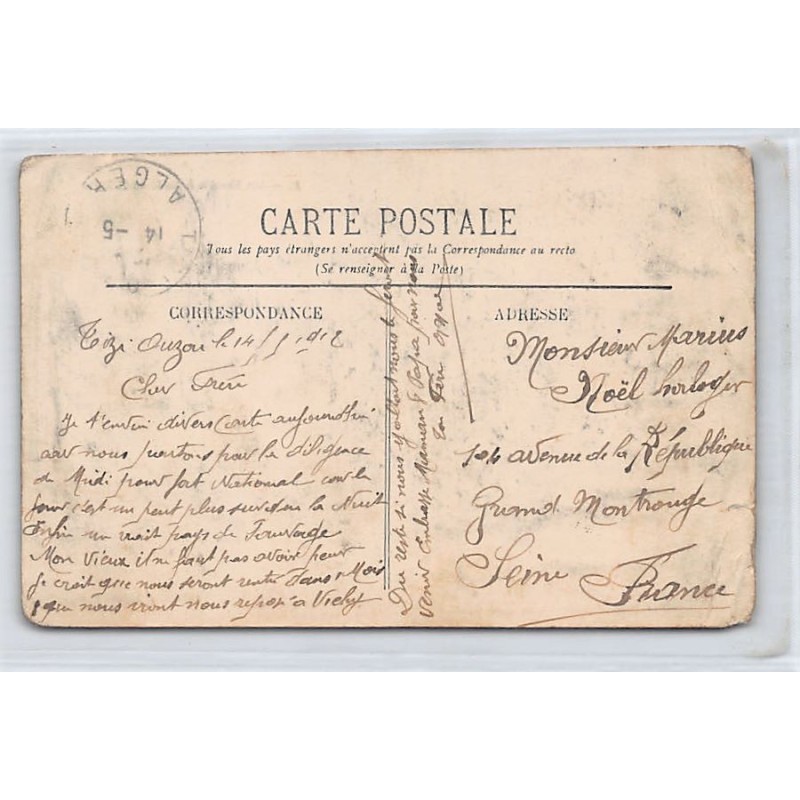 ALGER
14 -5
CARTE POSTALE
Tous les pays étrangers n'acceptent pas la Correspondance au recto
(Se renseigner à la Poste)
CORRESPONDANCE
Tizi Ouzou le 14/5 1912
Cher Frère
Je t'envoi divers carte aujourd'hui
car nous partons par la diligence
de Midi pour fort National car le
jour c'est un peut plus sur que la Nuit
Enfin un vrait pays de Sauvage
Mon Vieux il ne faut pas avoir peur
Je croit que nous seront rentre dans 1 Mois
que nous iront nous repose a Vichy
Du reste si nous y allont nous le feront
venir Embrasse Maman & Papa pour nous
ton Frère
ADRESSE
Monsieur Marius
Noël horloger
104 avenue de la République
Grand Montrouge
Seine
France